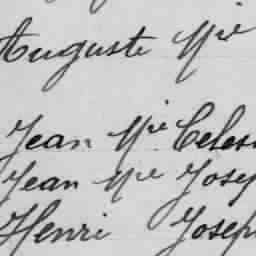 Auguste Mie
Jean Mie Celes
Jean Mie Josep
Henri Joseph